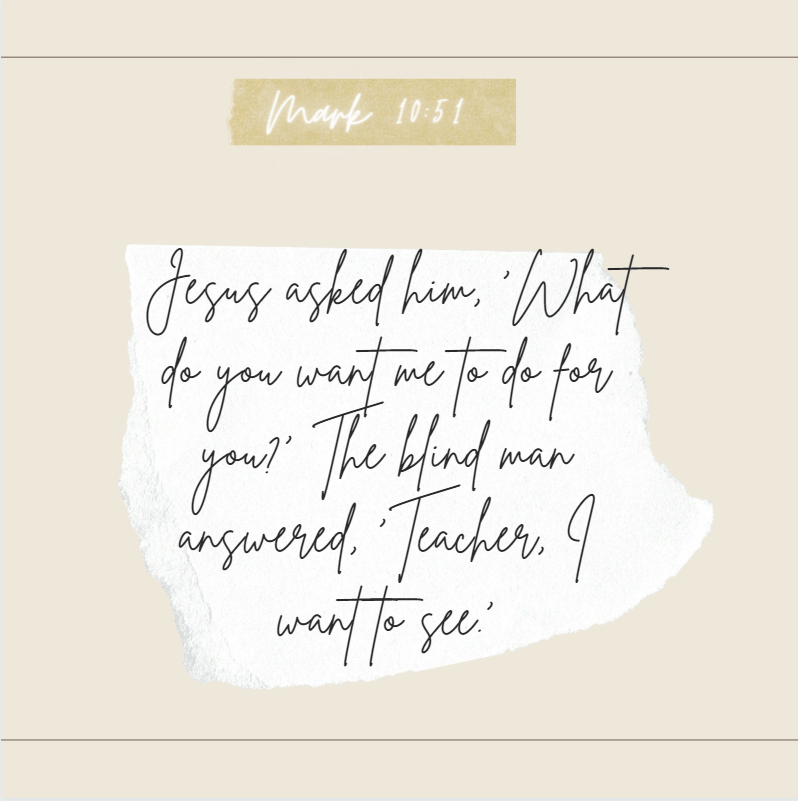 Mark 10:51
Jesus asked him, 'What
do you want me to do for
you?' The blind man
answered, 'Teacher, I
want to see.'